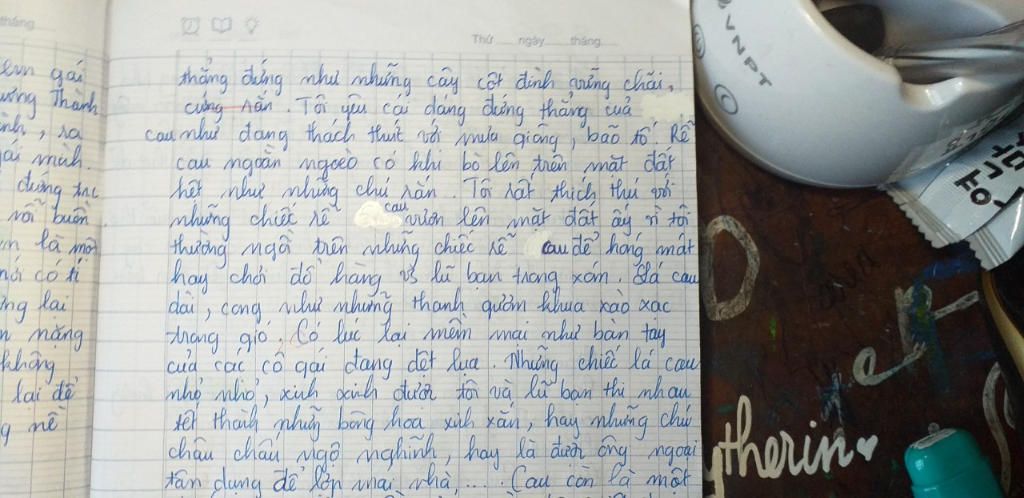 tháng
Thứ ngày tháng
em gái
ương Thành
ành, ra
gái mình.
đứng trc
với buồn
n là một
nói có tí
ng lại
n nắng
không
lại để
g nề
thẳng đứng như những cây cột đình vững chãi,
cứng rắn. Tôi yêu cái dáng đứng thẳng của
cau như đang thách thức với mưa giông, bão tố. Rễ
cau ngoằn ngoèo có khi bò lên trên mặt đất
hệt như những chú rắn. Tôi rất thích thú với
những chiếc rễ cau vươn lên mặt đất ấy vì tôi
thường ngồi trên những chiếc rễ cau để hóng mát
hay chơi đồ hàng vs lũ bạn trong xóm. Lá cau
dài, cong như những thanh gươm khua xào xạc
trong gió. Có lúc lại mềm mại như bàn tay
của các cô gái đang dệt lụa. Những chiếc lá cau
nhỏ nhỏ, xinh xinh được tôi và lũ bạn thi nhau
tết thành những bông hoa xinh xắn, hay những chú
châu chấu ngộ nghĩnh, hay là được ông ngoại
tận dụng để lợp mái nhà,.... Cau còn là một
VNPT
therin